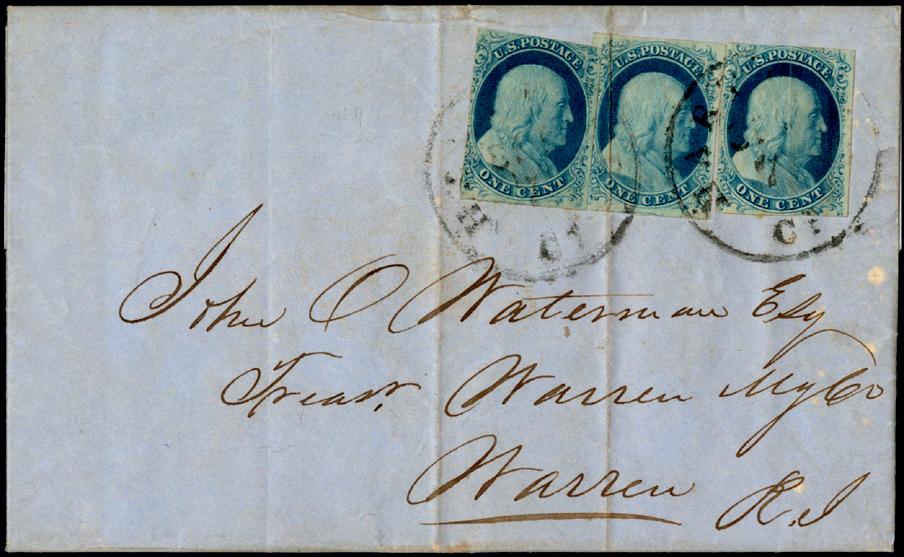 U.S. POSTAGE U.S. POSTAGE U.S. POSTAGE
ONE CENT ONE CENT ONE CENT
H CT CT
John O Waterman Esq
Treasr. Warren Mfg Co
Warren R.I